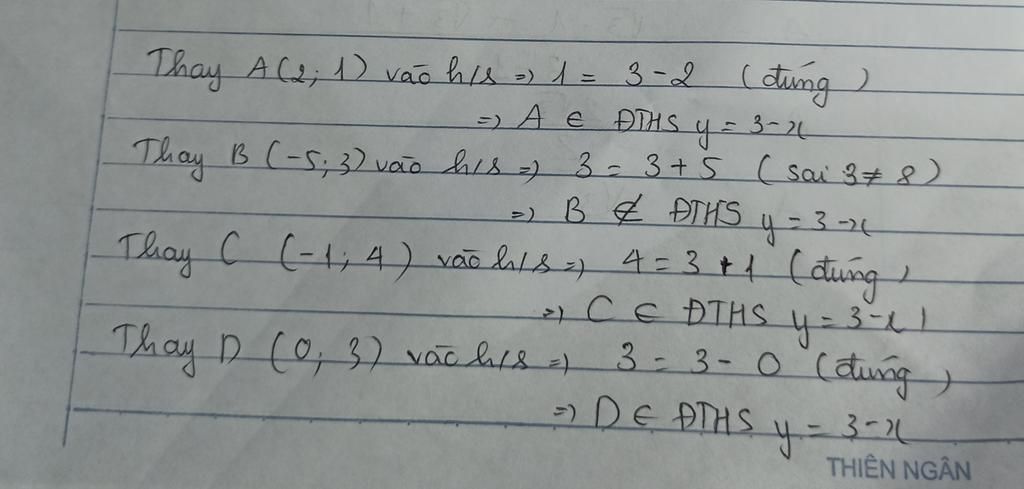 Thay A(2; 1) vào h/s => 1 = 3-2 (đúng)
=> A ∈ ĐTHS y = 3-x
Thay B (-5; 3) vào h/s => 3 = 3+5 (sai 3≠8)
=> B ∉ ĐTHS y = 3-x
Thay C (-1; 4) vào h/s => 4 = 3+1 (đúng)
=> C ∈ ĐTHS y = 3-x
Thay D (0; 3) vào h/s => 3 = 3-0 (đúng)
=> D ∈ ĐTHS y = 3-x
THIÊN NGÂN